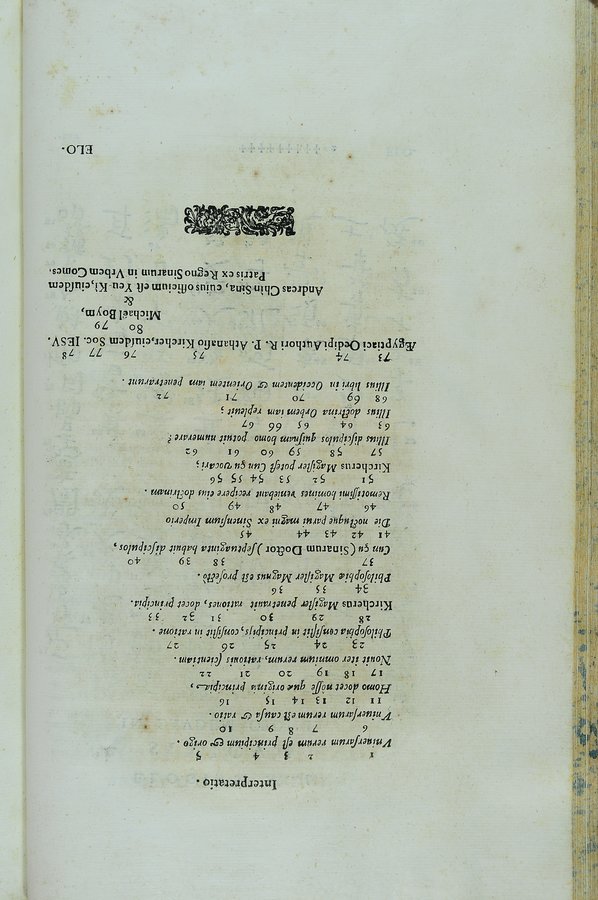 Interpretatio.
1 2 3 4 5
Vniuersarum rerum est principium & origo.
6 7 8 9 10
Vniuersarum rerum est causa & ratio.
11 12 13 14 15 16
Homo docet nosse quæ origina principia,
17 18 19 20 21 22
Nouit iter omnium rerum, rationis scientiam.
23 24 25 26 27
Philosophia consistit in principijs, consistit in ratione.
28 29 30 31 32 33
Kircherus Magister penetrauit rationes, docet principia.
34 35 36
Philosophiæ Magister Magnus est profecto.
37 38 39 40
Cun çu (Sinarum Doctor) septuaginta habuit discipulos,
41 42 43 44 45
Die noctuque parui magni ex Sinensium Imperio
46 47 48 49 50
Remotissimi homines veniebant recipere eius doctrinam.
51 52 53 54 55 56
Kircherus Magister potest Cun çu vocari;
57 58 59 60 61 62
Illius discipulos quisnam homo potuit numerare?
63 64 65 66 67
Illius doctrina Orbem iam repleuit;
68 69 70 71 72
Illius libri in Occidentem & Orientem iam penetrarunt.
73 74 75 76 77 78
Ægyptiaci Oedipi Authori R. P. Athanasio Kircher, eiusdem Soc. IESV.
80 79
Michael Boym,
&
Andreas Chin Sina, cuius officium est Yeu Ki, eiusdem
Patris ex Regno Sinarum in Vrbem Comes.
ELO.